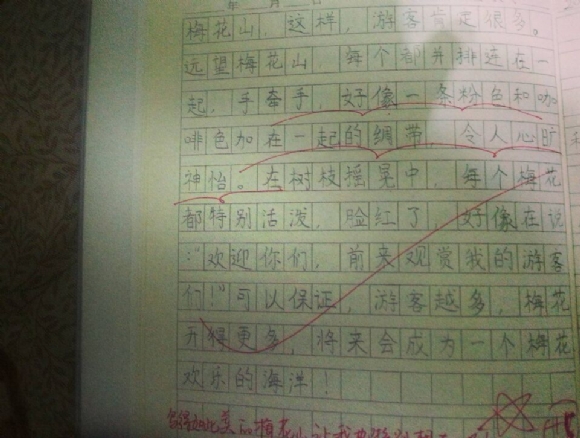 年 月 日
梅花山，这样，游客肯定很多。
远望梅花山，每个都并排连在一
起，手牵手，好像一条粉色和咖
啡色加在一起的绸带，令人心旷
神怡。在树枝摇晃中，每个梅花
都特别活泼，脸红了，好像在说
：“欢迎你们，前来观赏我的游客
们！”可以保证，游客越多，梅花
开得更多，将来会成为一个梅花
欢乐的海洋！